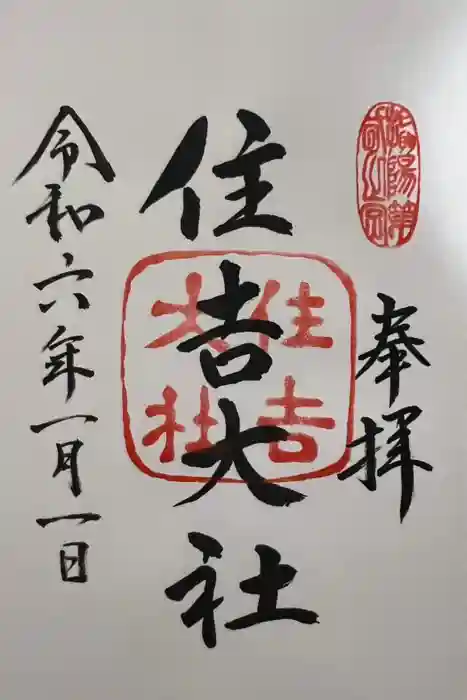 奉拝
住吉大社
住吉大社
令和六年一月一日